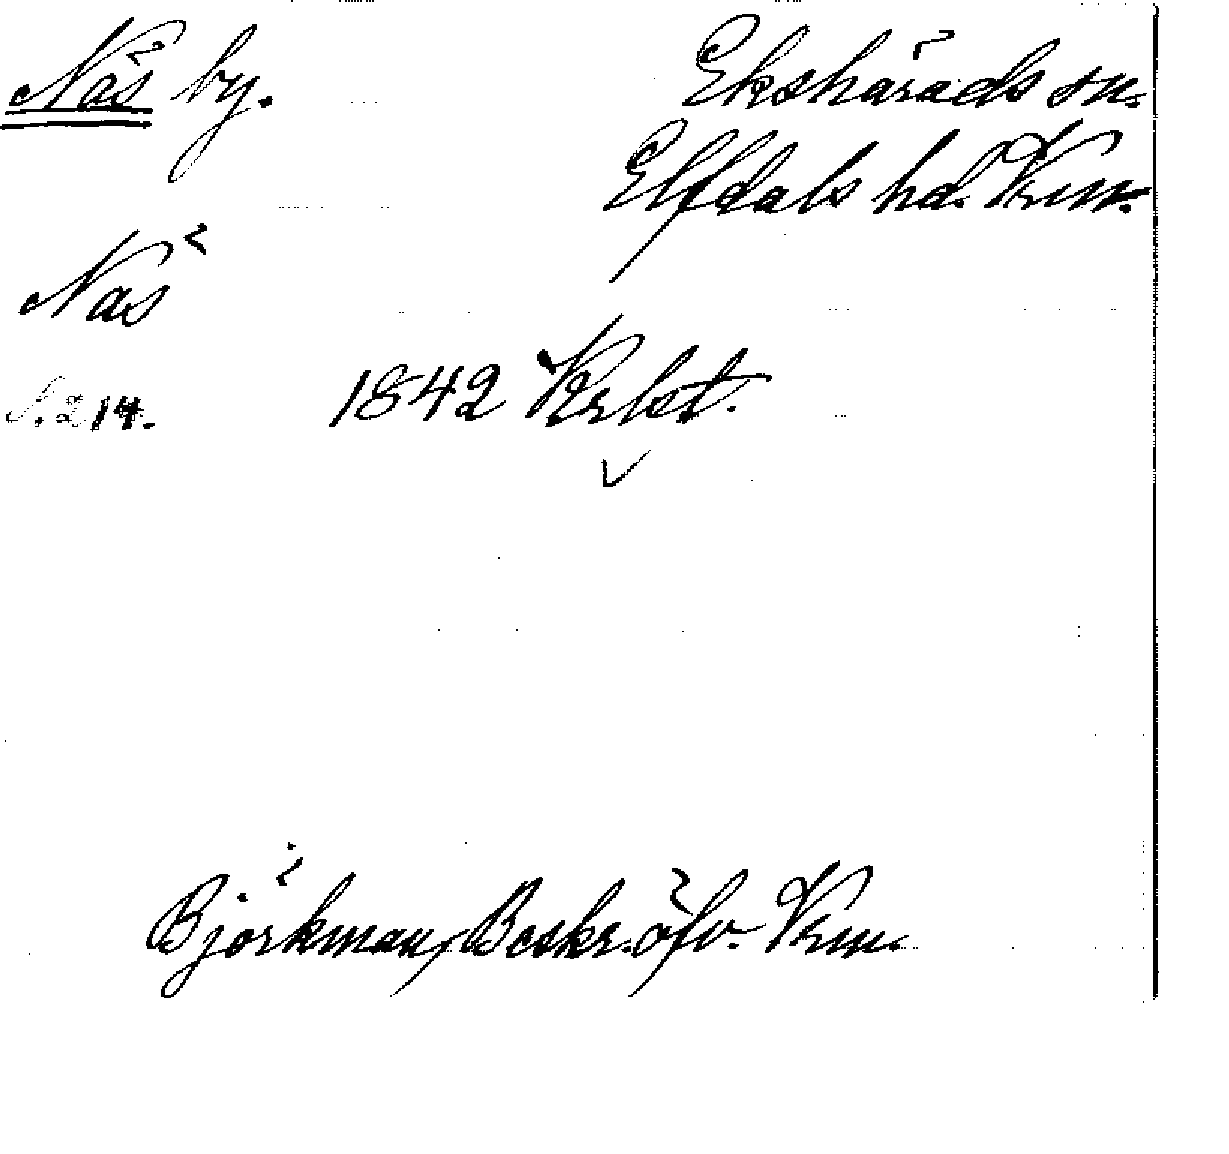 Näs by. Ekshärads sn.
Elfdals hd. Vrm.
Näs
S. 214. 1842 Krlst.
Björkman, Beskr. öfv. Vrm.